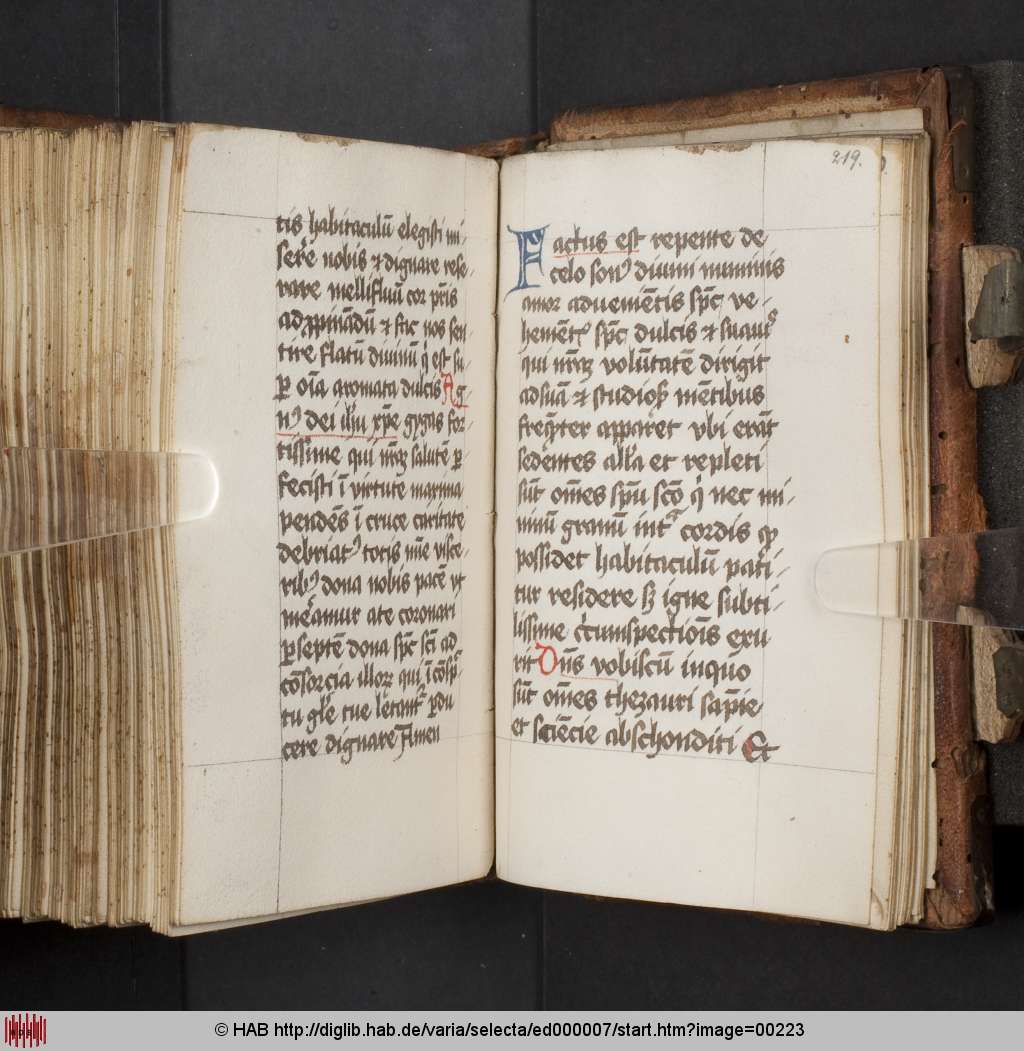 tis habitaculũ elegisti mi-
sere̾ nobis ⁊ dignare rese-
rare mellifluũ cor pr̃is
ad ꝓpinãdũ ⁊ fac nos sen
tire flatũ divinũ q̇ est su-
ꝑ oĩa aromata dulcis Ag-
nꝰ dei ih̃u xp̃e gygas for-
tissime qui nr̃aꝫ salutẽ ꝑ-
fecisti ĩ virtute
pendẽs ĩ cruce caritate
debriatꝰ totis tue visce-
ribꝰ dona nobis pacẽ vt
mereamur a te coronari
ꝑ septẽ dona sp̃c sc̃i ad
cõsorcia illorꝫ qui ĩ cõsp̃-
tu gl̃e tue letant᷑ ꝑdu
cere dignare Amen
219.
Factus est repente de
celo sonꝰ divini numinis
amor advenẽtis sp̃c ve-
hemẽt᷑ sp̃c dulcis ⁊ suavꝰ
qui nr̃aꝫ volũtatẽ dirigit
ad suã ⁊ studiosꝭ mẽtibus
freq̃ter apparet vbi erãt
sedentes all̃a et repleti
sũt om̃es sp̃u sc̃o q̇ nec mi-
nimũ granũ int᷑ cordis
possidet habitaculũ pati-
tur residere sꝫ igne subti-
lissime circumspectiõis exu
rit Dñs vobiscũ in quo
sũt om̃es thezauri sapĩe
et sciẽcie abschonditi Et
© HAB http://diglib.hab.de/varia/selecta/ed000007/start.htm?image=00223